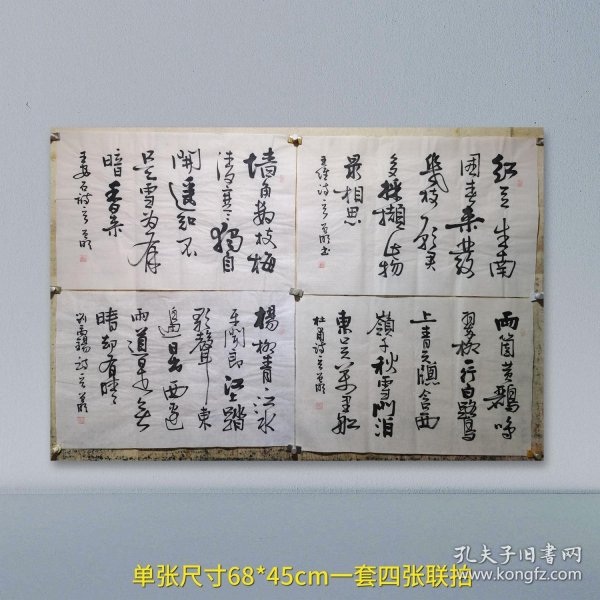 红豆生南
國春来發
幾枝願君
多採擷此物
最相思
王维诗
墙角數枝梅
凌寒獨自
開遥知不
是雪为有
暗香来
王安石诗
兩箇黄鸝鸣
翠柳一行白鷺
上青天牕含西
嶺千秋雪門泊
東吴万里船
杜甫诗
楊柳青青江水
平聞郎江上踏
歌聲東
邊日出西邊
雨道是无
晴却有晴
刘禹锡诗
单张尺寸68*45cm一套四张联拍
孔夫子旧书网
www.kongfz.com